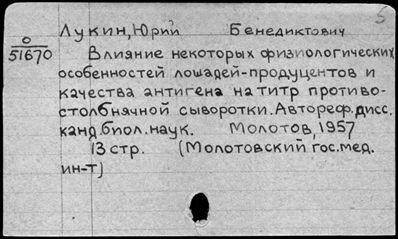 5
Лукин, Юрий Бенедиктович
О
51670
Влияние некоторых физиологических
особенностей лошадей-продуцентов и
качества антигена на титр противо-
столбнячной сыворотки. Автореф. дисс.
канд. биол. наук. Молотов, 1957
13 стр. (Молотовский гос. мед.
ин-т)